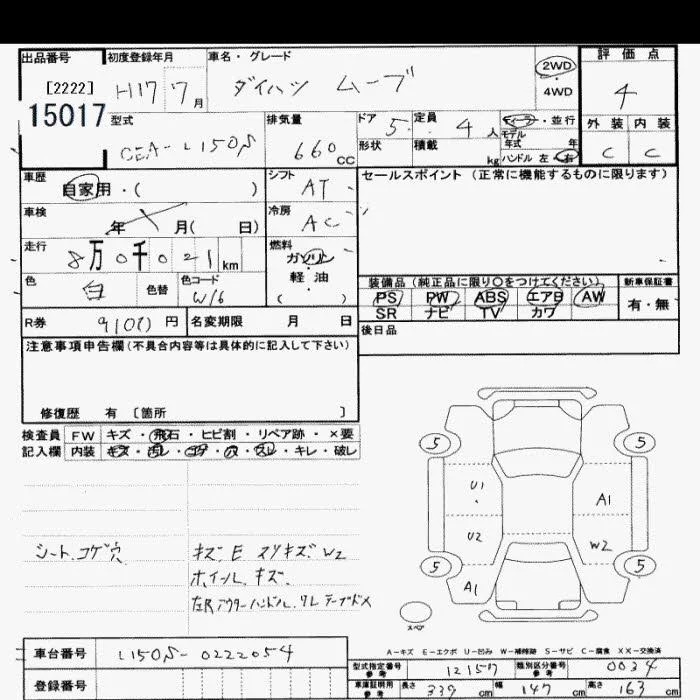 出品番号 初度登録年月 車名・グレード 評価点
[2222] H17 7月 ダイハツ ムーブ 2WD ・ 4WD 4
15017 型式 排気量 ドア 5 定員 4人 ディーラー・並行 外装 内装
CBA-L150S 660CC 形状 積載 kg モデル年式 年 C C
ハンドル 左・右
車歴 自家用・( ) シフト AT セールスポイント(正常に機能するものに限ります)
車検 年 月( 日) 冷房 AC
走行 8万0千021km 燃料 ガソリン・軽油・( )
色 白 色替 色コード W16 装備品(純正品に限り○をつけてください) 新車保証書
PS PW ABS エアB AW 有・無
SR ナビ TV カワ
R券 9100円 名変期限 月 日 後日品
注意事項申告欄(不具合内容等は具体的に記入して下さい)
修復歴 有〔箇所 〕
検査員 FW キズ・飛石・ヒビ割・リペア跡・×要
記入欄 内装 キズ・汚レ・コゲ・穴・スレ・キレ・破レ
5 5
U1 A1
U2 W2
5 5
A1
スペア
シート.コゲ穴 キズ.E スリキズ W2
ホイール.キズ.
左R アウターハンドル.
A-キズ E-エクボ U-凹み W-補修跡 S-サビ C-腐食 XX-交換済
車台番号 L150S-0222054
登録番号
型式指定番号 参考 12157 類別区分番号 参考 0034
車庫証明用 参考 長さ 339cm 幅 147cm 高さ 163cm